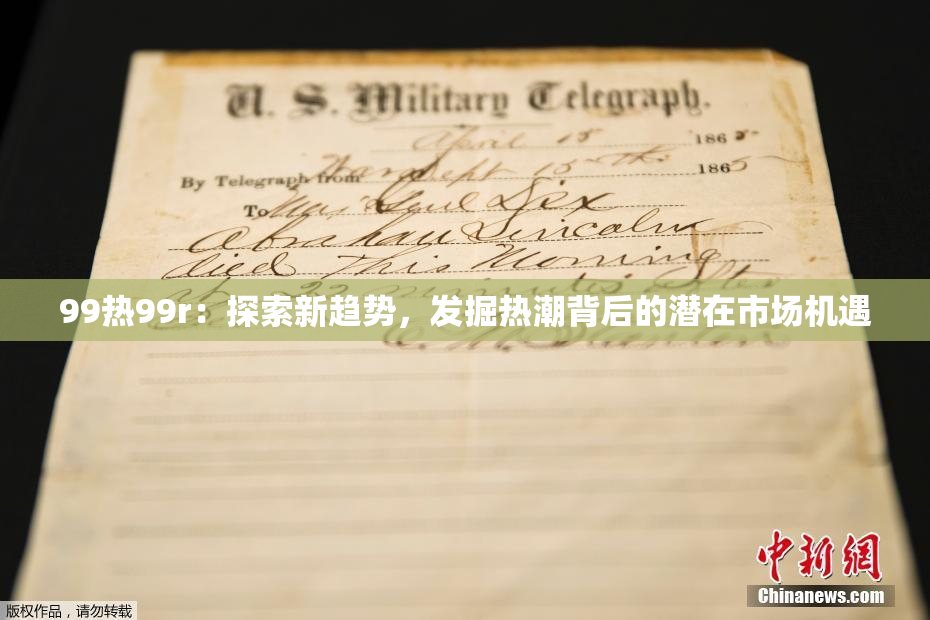 U. S. Military Telegraph.
April 15 1865
By Telegraph from War Dept 15th 1865
To Maj Genl Dix
Abraham Lincoln
died This Morning
at 22 minutes after
99热99r：探索新趋势，发掘热潮背后的潜在市场机遇
中新网
Chinanews.com
版权作品，请勿转载